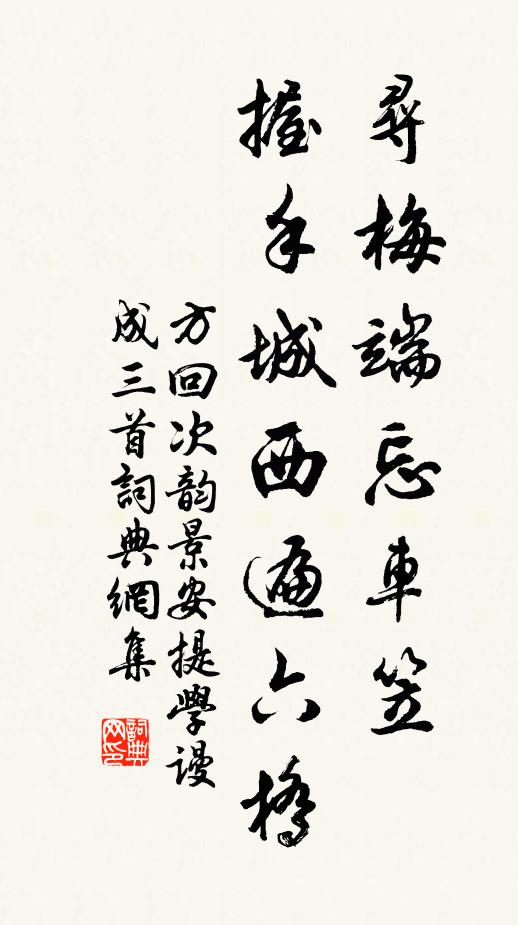 尋梅端忘車笠
握手城西遍六橋
方回次韵景安提學謾
成三首詞典網集
詞典網印